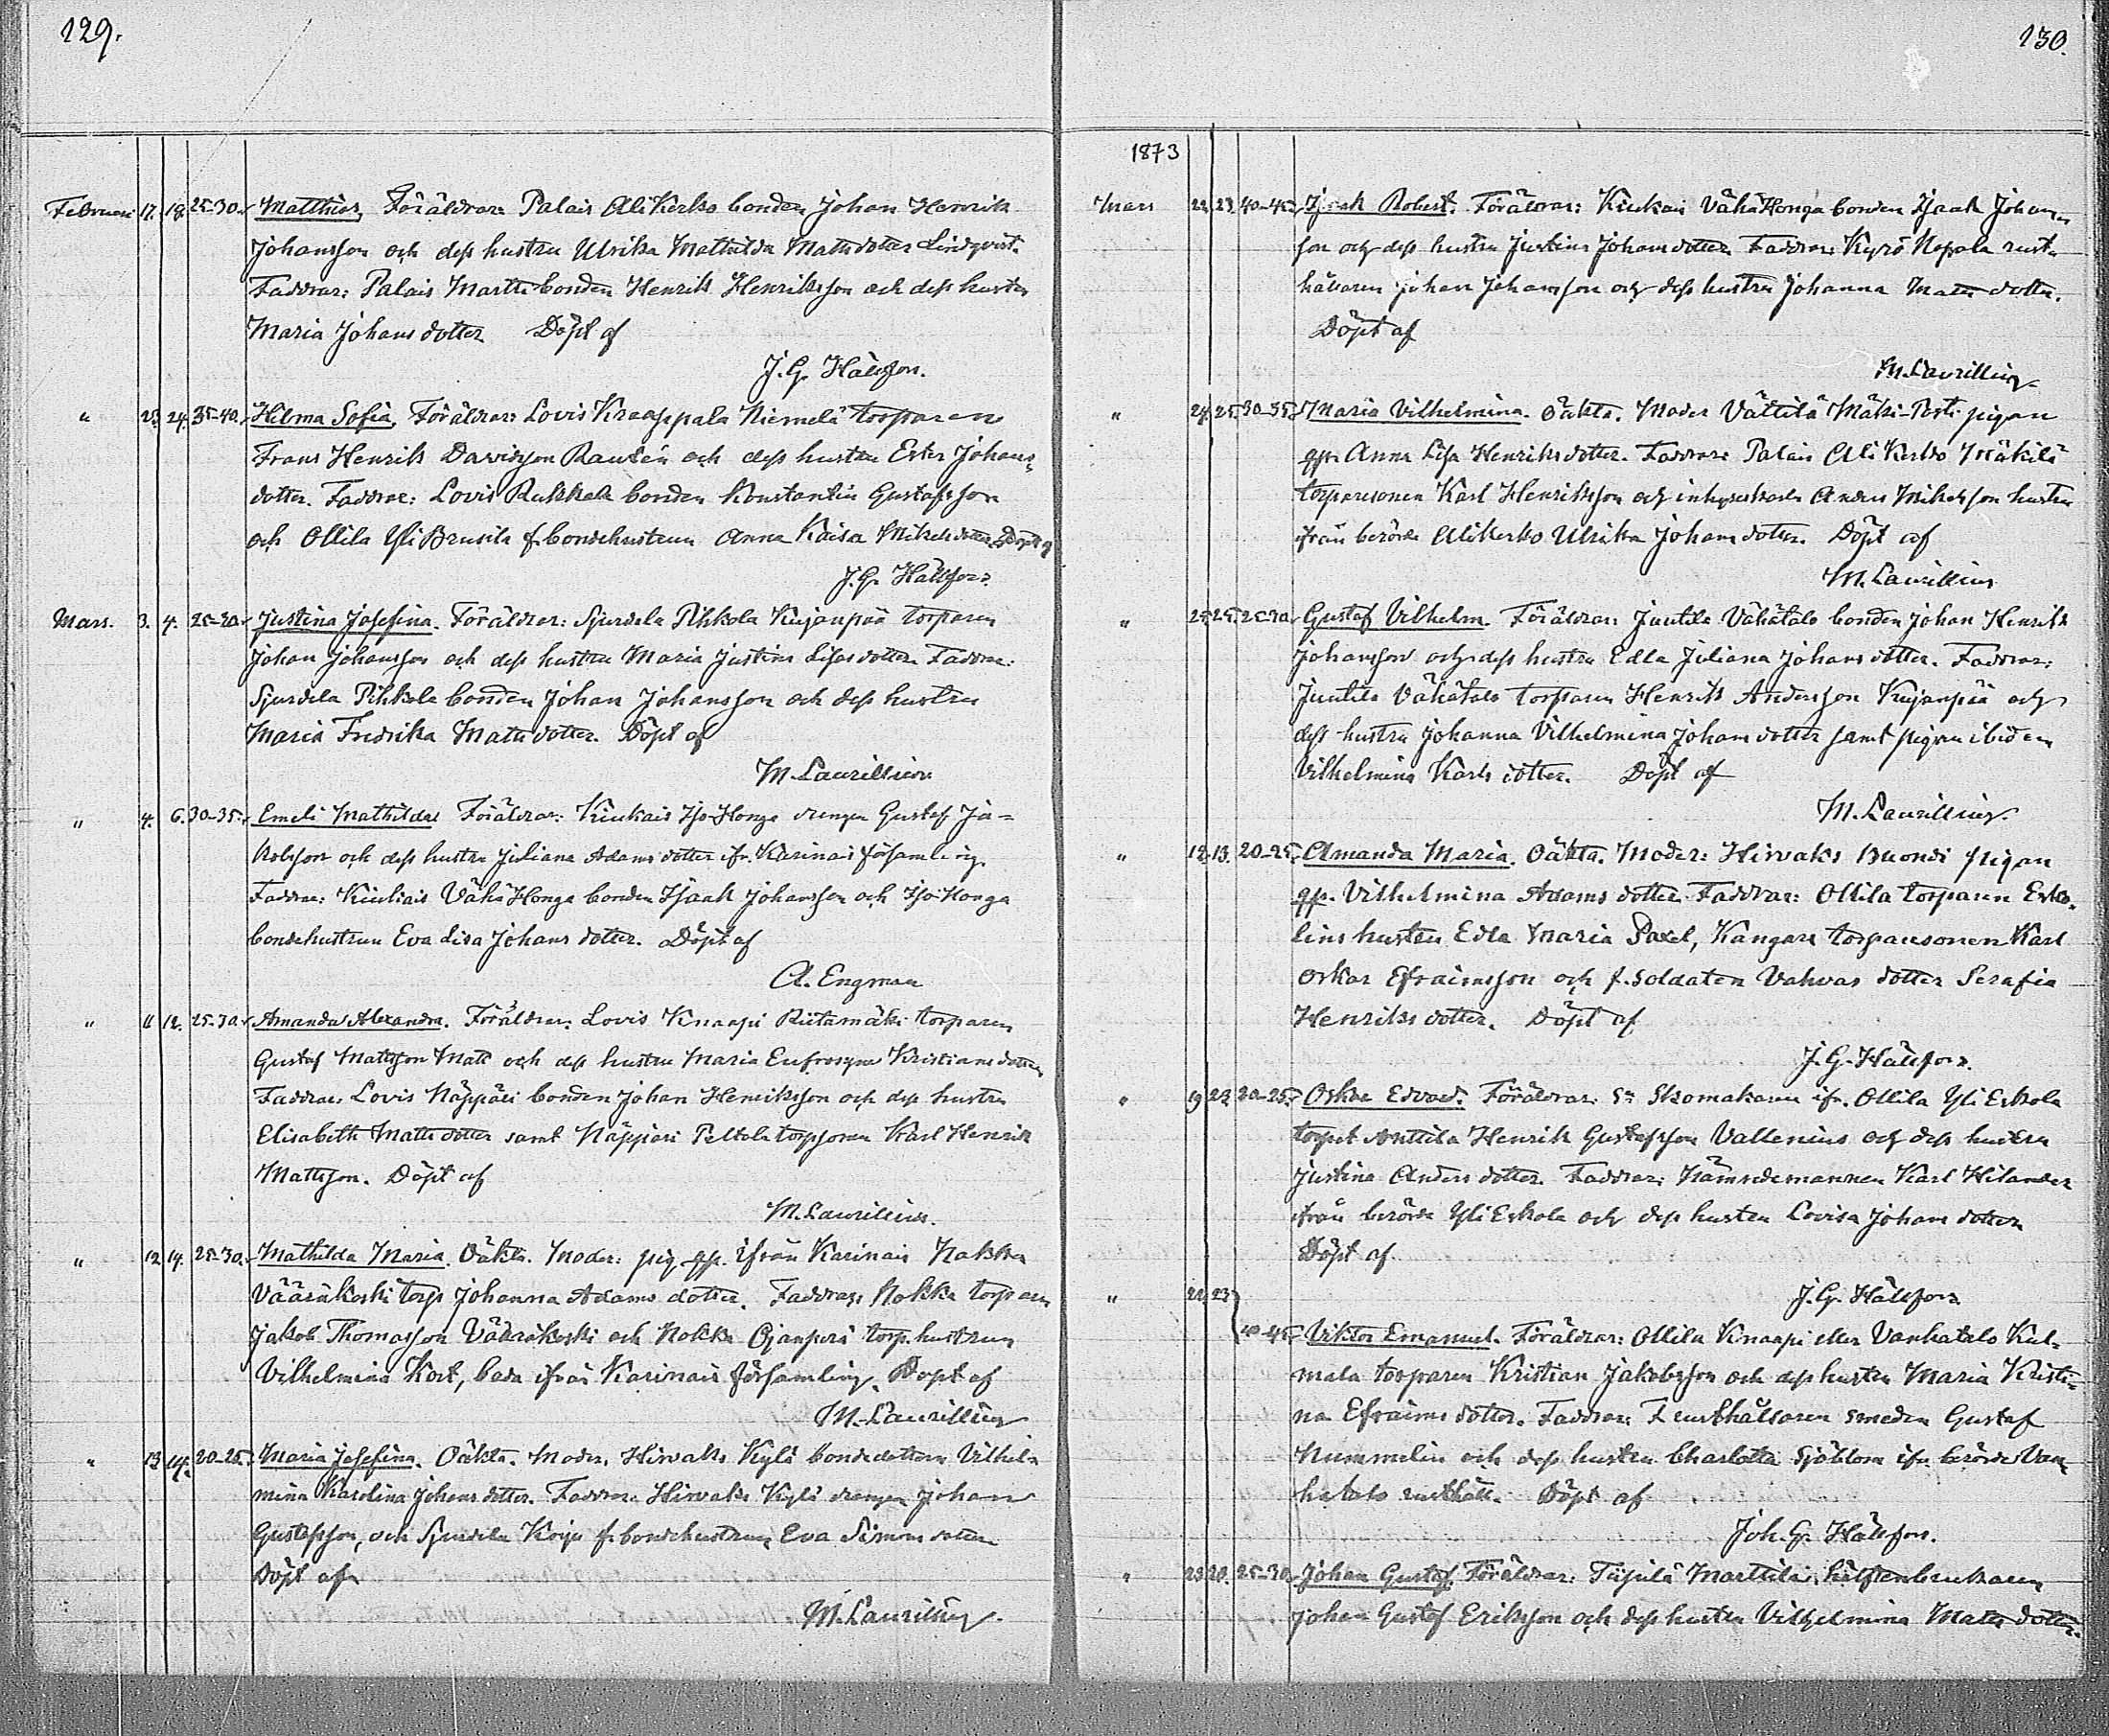 129.
Februari 17. 18. 25-30. Matthias, Föräldrar: Palais AliKerko bonden Johan Henrik
Johansson och dess hustru Ulrika Mathilda Mattsdotter Lindqvist.
Faddrar: Palais Martti bonden Henrik Henriksson och dess hustru
Maria Johansdotter Döpt af
J. G. Hällfors.
" 23. 24. 35-40. Hilma Sofia, Föräldrar: Lovis Kraappala Niemelä torparen
Frans Henrik Davidsson och dess hustru Ester Johans-
dotter. Faddrar: Lovis bonden Konstantin Gustafsson
och Ollila Yli Brusila f. bondehustrun Anna Kaisa Mikelsdotter. Döpt af
J. G. Hällfors.
Mars. 3. 4. 25-30. Justina Josefina. Föräldrar: Sjurdela Pihkola Kujanpää torparen
Johan Johansson och dess hustru Maria Justina dotter Faddrar:
Sjurdela Pihkola bonden Johan Johansson och dess hustru
Maria Fredrika Mattsdotter. Döpt af
M. Laurellius
" 4. 6. 30-35. Emeli Mathilda. Föräldrar: Kiukais Iso-Honga drengen Gustaf Ja-
kobsson och dess hustru Juliana Adamsdotter ifr. Karinais församling.
Faddrar: Kiukais Vähä Honga bonden Isaak Johansson och Iso-Honga
bondehustrun Eva Lisa Johansdotter. Döpt af
A. Engman
" 11 12. 25-30. Amanda Alexandra. Föräldrar: Lovis Knaapi Riitamäki torparen
Gustaf Mattsson Matt och dess hustru Maria Eufrosyne Kristiansdotter
Faddrar: Lovis Näppäri bonden Johan Henriksson och dess hustru
Elisabeth Mattsdotter samt Näppäri Peltola torpsonen Karl Henrik
Mattsson. Döpt af
M. Laurellius.
" 12. 14. 25-30. Mathilda Maria. Oäkta. Moder: pig. gfr. ifrån Karinais Nokka
Vääräkoski torp Johanna Adams dotter. Faddrar: Nokka torparen
Jakob Thomasson Vääräkoski och Nokka Ojanperä torp. hustrun
Vilhelmina Kort, båda ifrån Karinais församling. Döpt af
M. Laurellius
" 13 14. 20-25. Maria Josefina. Oäkta. Moder. Hirvaks Kylä bondedottern Vilhel-
mina Karolina Johansdotter. Faddrar: Hirvaks Kylä drengen Johan
Gustafsson, och Sjurdela f. bondehustrun Eva Simonsdotter
Döpt af
M. Laurellius.
130.
1873
Mars 22. 23. 40-45. Isaak Robert. Föräldrar: Kiukais Vähä Honga bonden Isaak Johans-
son och dess hustru Justina Johansdotter. Faddrar: Kyrö Nopola rust-
hållaren Johan Johansson och dess hustru Johanna Mattsdotter.
Döpt af
M. Laurellius
" 24. 25. 30-35. Maria Vilhelmina. Oäkta. Moder Vättilä Mäki-Perti pigan
gfr. Anna Lisa Henriksdotter. Faddrar: Palais Ali Kerko Mäkilä
torparesonen Karl Henriksson och Anders Mikelsson hustru
ifrån berörde AliKerko Ulrika Johansdotter. Döpt af
M. Laurellius
" 25. 25. 25-30. Gustaf Vilhelm. Föräldrar: Juutila Vähätalo bonden Johan Henrik
Johansson och dess hustru Edla Juliana Johansdotter. Faddrar:
Juutila Vähätalo torparen Henrik Andersson Kujanpää och
dess hustru Johanna Vilhelmina Johansdotter samt pigan ibidem
Vilhelmina Karls dotter. Döpt af
M. Laurellius.
" 12. 13. 20-25. Amanda Maria. Oäkta. Moder: Hirvaks Buondi pigan
gfr. Vilhelmina Adamsdotter. Faddrar: Ollila torparen Esko-
lins hustru Edla Maria Paxel, Kangars torparesonen Karl
Oskar Efraimsson och f. soldaten Vahvas dotter Serafia
Henriksdotter. Döpt af
J. G. Hällfors.
" 19 23. 20-25. Oskar Edvard. Föräldrar: Skomakaren ifr. Ollila Yli Eskola
torpet Anttila Henrik Gustafsson Vallenius och dess hustru
Justina Andersdotter. Faddrar: Nämndemannen Karl Hilander
ifrån berörde Yli Eskola och dess hustru Lovisa Johansdotter
Döpt af
J. G. Hällfors
" 22. 23. 40-45. Viktor Emanuel. Föräldrar: Ollila Knaapi eller Vanhatalo Kul-
mala torparen Kristian Jakobsson och dess hustru Maria Kristi-
na Efraimsdotter. Faddrar: Rusthållaren smeden Gustaf
Nummelin och dess hustru Charlotta Sjöblom ifr. berörde Van-
hatalo rusthåll. Döpt af
Joh. G. Hällfors.
" 25-30. Johan Gustaf. Föräldrar: Tiipilä Marttila hälftenbrukaren
Johan Gustaf Eriksson och dess hustru Vilhelmina Mattsdotter.